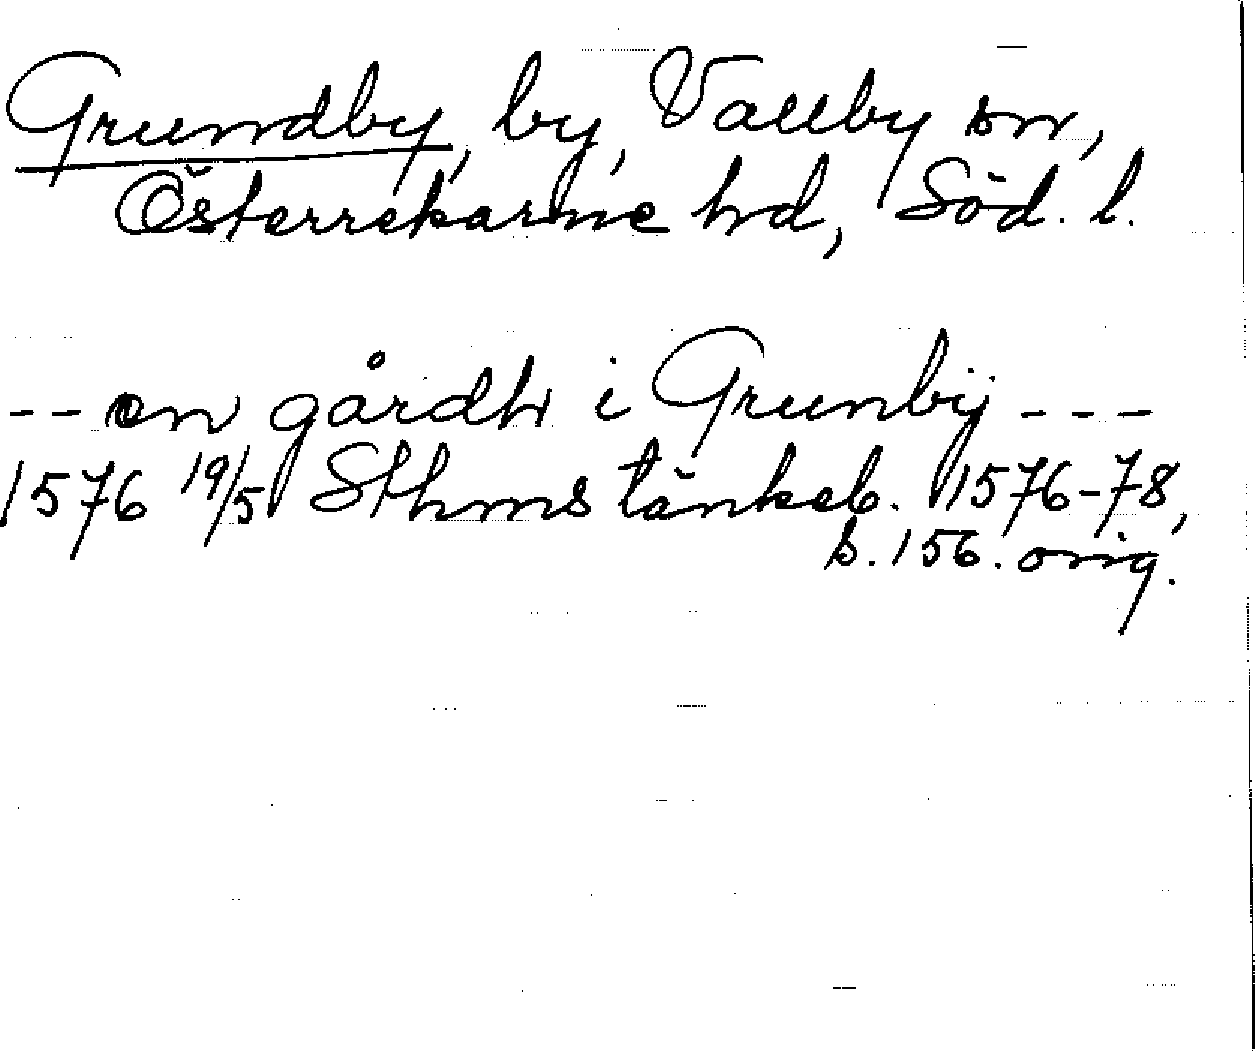 Grundby, by, Vallby sn,
Österrekarne hd, Söd. l.
-- en gårdh i Grunbÿ ---
1576 19/5 Sthms tänkeb. 1576-78,
s. 156. orig.